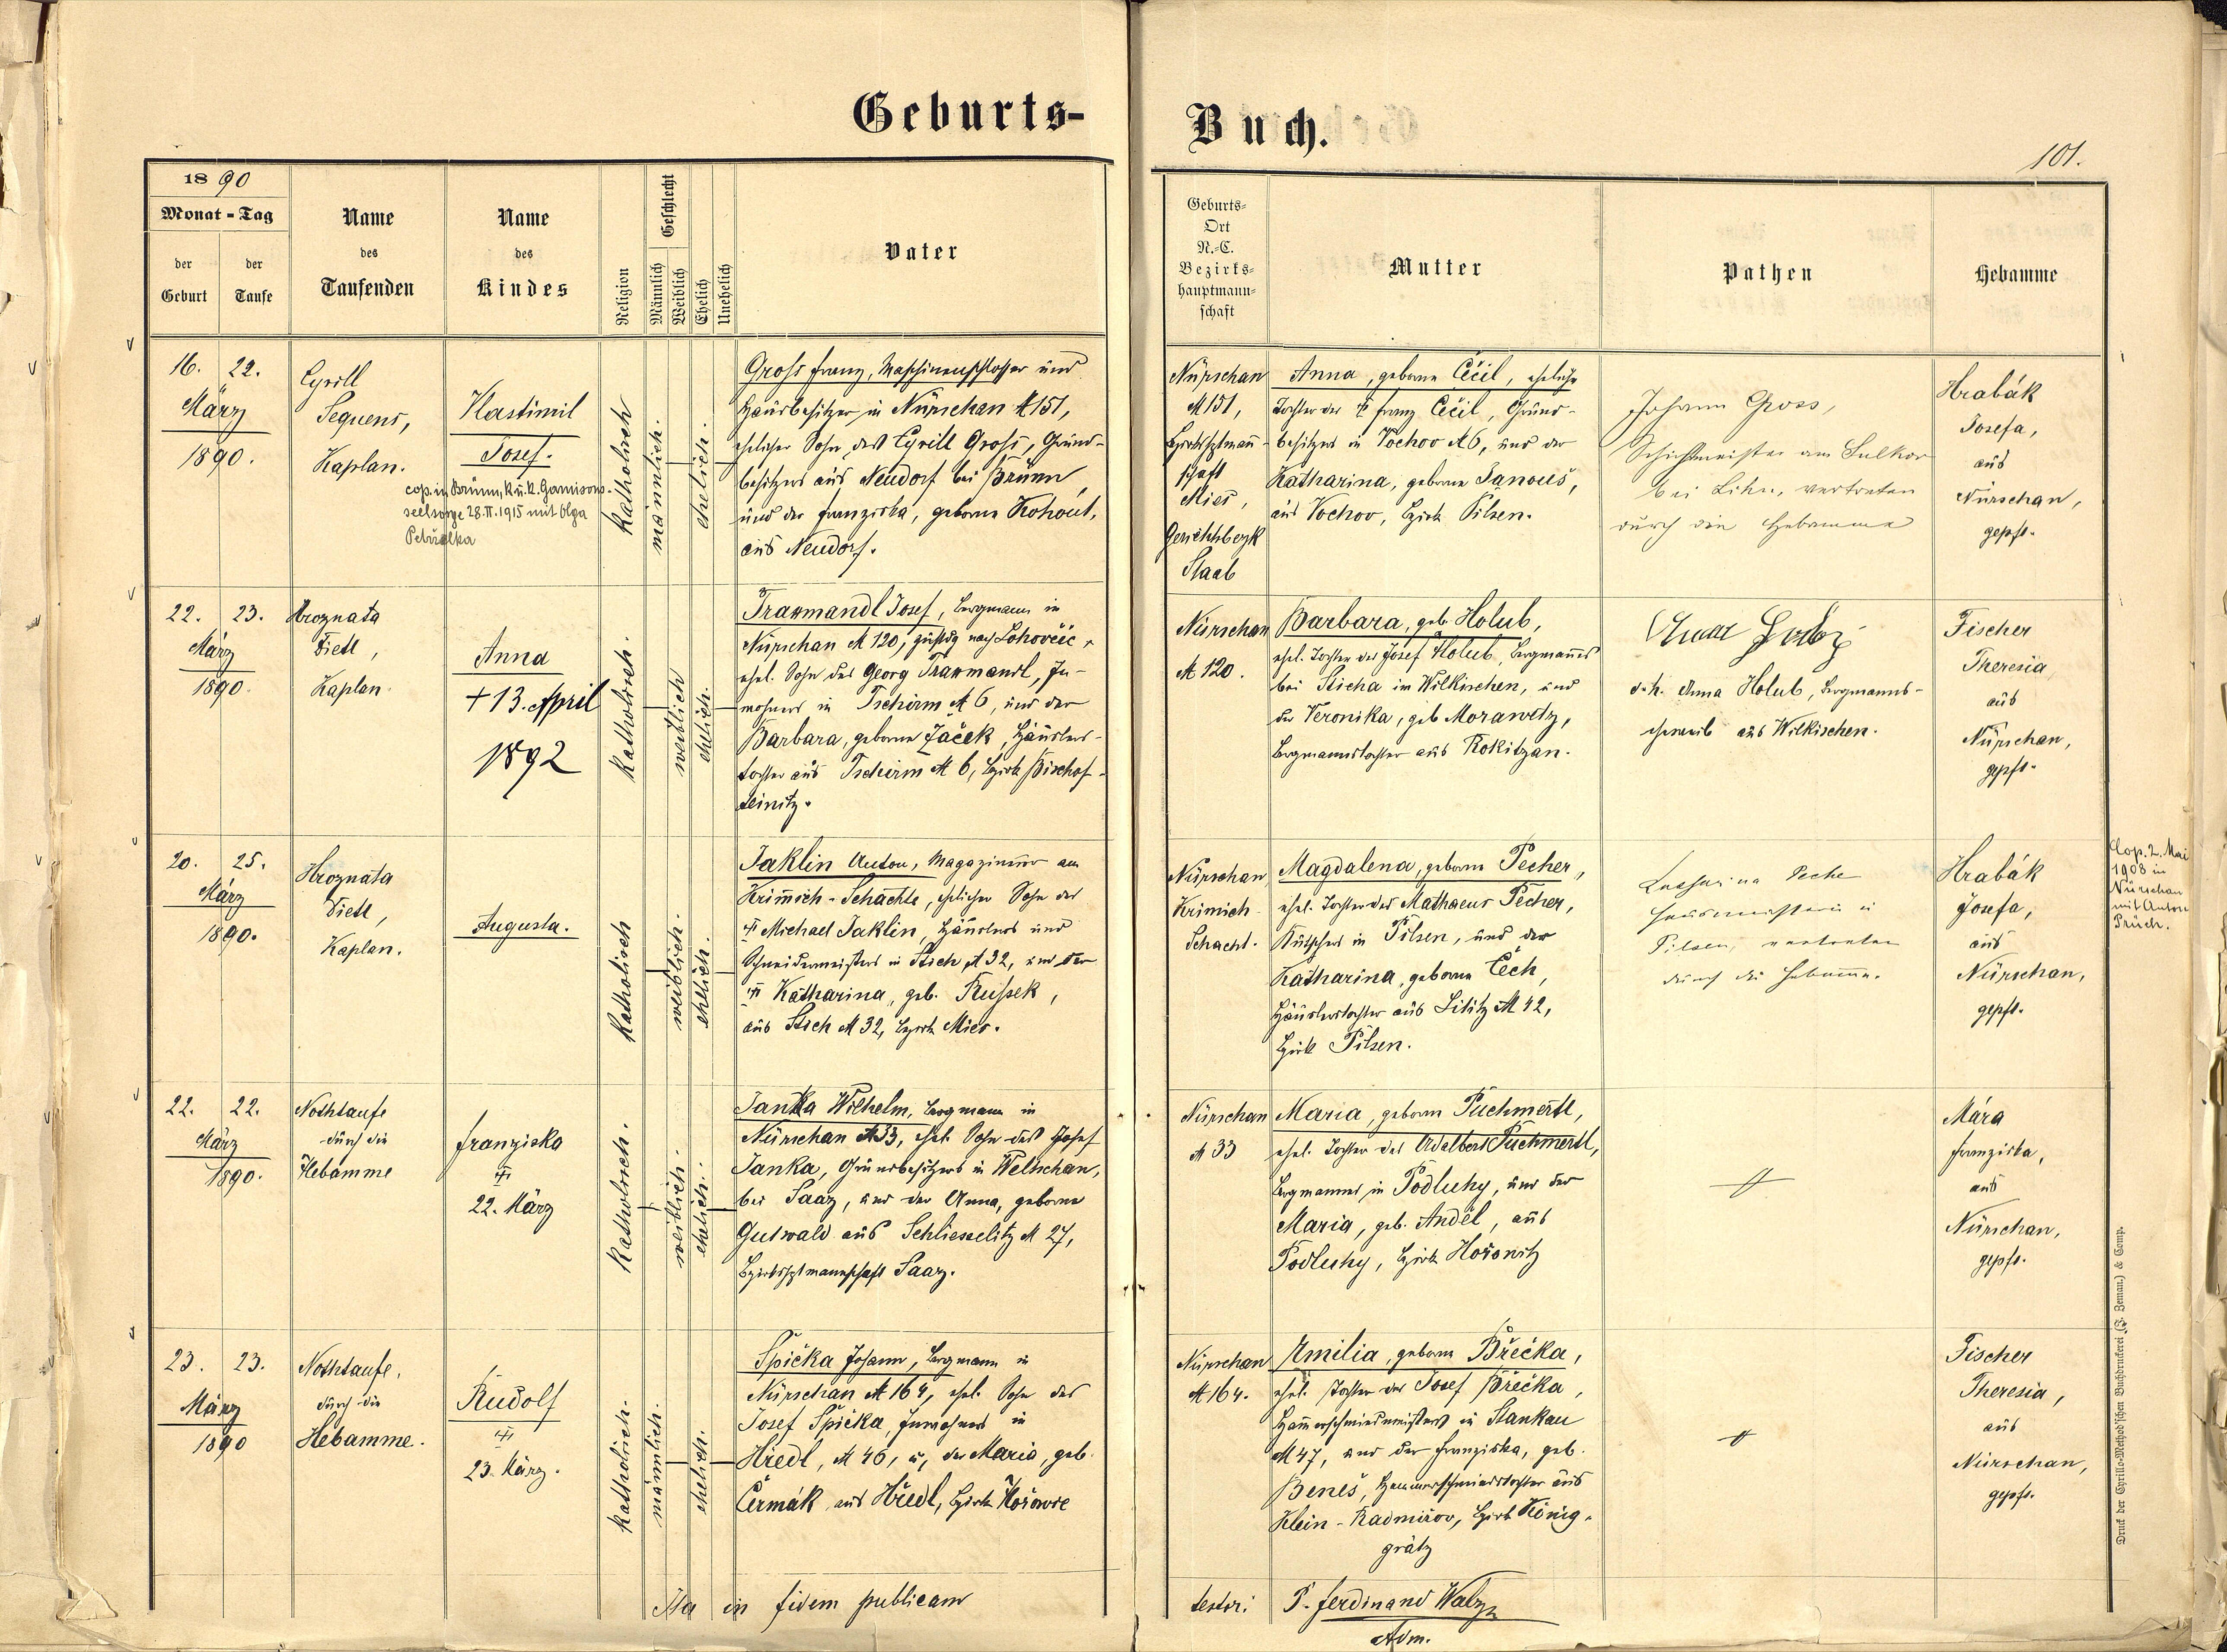 Geburts-
Buch.
101.
1890
Monat-Tag
der Geburt
der Taufe
Name
des
Taufenden
Name
des
Kindes
Religion
Geschlecht
Männlich
Weiblich
Ehelich
Unehelich
Vater
Geburts-
Ort
N.-C.
Bezirks-
hauptmann-
schaft
Mutter
Pathen
Hebamme
16. 22.
März
1890.
Cyrill
Sequens,
Kaplan.
Hastimil
Josef.
cop. in Brünn, k. u. k. Garnisons-
seelsorge 28.II.1915 mit Olga
Petržalka
Katholisch
männlich.
ehelich.
Gross Franz, Maschinenschlosser und
Hausbesitzer in Nürschan N 151,
ehelicher Sohn des Cyrill Gross, Grund-
besitzers aus Neudorf bei Brünn,
und der Franziska, geborne Kohout,
aus Neudorf.
Nürschan
N 151,
Bezirkshptmann-
schaft
Mies,
Gerichtsbezk
Staab
Anna, geborne Cčil, eheliche
Tochter des Franz Cčil, Grund-
besitzers in Vochov N 6, und der
Katharina, geborne Janouš,
aus Vochov, Bezirk Pilsen.
Johann Gross,
Schichtmeister am Sulkov
bei Lihn, vertreten
durch die Hebamme
Hrabák
Josefa,
aus
Nürschan,
gepft.
22. 23.
März
1890.
Hroznata
Dietl,
Kaplan.
Anna
+ 13. April
1892
Katholisch.
weiblich
ehelich.
Traxmandl Josef, Bergmann in
Nürschan N 120, zustdg nach Lohovčic,
ehel. Sohn des Georg Traxmandl, In-
wohners in Tschirm N 6, und der
Barbara, geborne Jáček, Häuslers-
tochter aus Tschirm N 6, Bezirk Bischof-
teinitz.
Nürschan
N 120.
Barbara, geb. Holub,
ehel. Tochter des Josef Holub, Bergmannes
bei Sticha im Wilkischen, und
der Veronika, geb. Morawetz,
Bergmannstochter aus Rokitzan.
d. h. Anna Holub, Bergmanns-
eheweib aus Wilkischen.
Fischer
Theresia,
aus
Nürschan,
gepft.
20. 25.
März
1890.
Hroznata
Dietl,
Kaplan.
Augusta.
Katholisch
weiblich.
ehelich.
Jaklin Anton, Magazineur am
Krimich-Schachte, ehelicher Sohn des
Michael Jaklin, Häuslers und
Schneidermeisters in Stich N 32, und der
Katharina, geb. Russek,
aus Stich N 32, Bezirk Mies.
Nürschan,
Krimich-
Schacht.
Magdalena, geborne Pecher,
ehel. Tochter des Mathaeus Pecher,
Kutschers in Pilsen, und der
Katharina, geborne Čech,
Häuslerstochter aus Lititz N 42,
Bezirk Pilsen.
Katharina Peche
Hausmeisterin in
Pilsen, vertreten
durch die Hebamme.
Hrabák
Josefa,
aus
Nürschan,
gepft.
Cop. 2. Mai
1908 in
Nürschan
mit Anton
Průch.
22. 22.
März
1890.
Nothtaufe
durch die
Hebamme
Franziska
22. März
Katholisch.
weiblich.
ehelich.
Janka Wilhelm, Bergmann in
Nürschan N 33, ehel. Sohn des Josef
Janka, Grundbesitzers in Weltschan,
bei Saaz, und der Anna, geborne
Gutwald aus Schliesselitz N 27,
Bezirkshptmannschaft Saaz.
Nürschan
N 33
Maria, geborne Puchmertl,
ehel. Tochter des Adalbert Puchmertl,
Bergmannes in Podluhy, und der
Maria, geb. Anděl, aus
Podluhy, Bezirk Hořowitz
Mára
Franziska,
aus
Nürschan,
gepft.
23. 23.
März
1890
Nothtaufe,
durch die
Hebamme.
Rudolf
23. März.
Katholisch.
männlich.
ehelich.
Špička Johann, Bergmann in
Nürschan N 164, ehel. Sohn des
Josef Špička, Inwohners in
Hředl, N 46, u, der Maria, geb.
Čermák aus Hředl, Bezirk Hořowic
Nürschan
N 164.
Emilia, geborne Břečka,
ehel. Tochter des Josef Břečka,
Hammerschmiedmeisters in Stankau
N 47, und der Franziska, geb.
Beneš, Hammerschmiedstochter aus
Klein-Radmirov, Bezirk König-
grätz
Fischer
Theresia,
aus
Nürschan,
gepft.
Ita in fidem publicam
testor: P. Ferdinand Walzn
Adm.
Druck der Cyrillo-Method'schen Buchdruckerei (J. Zeman) & Comp.